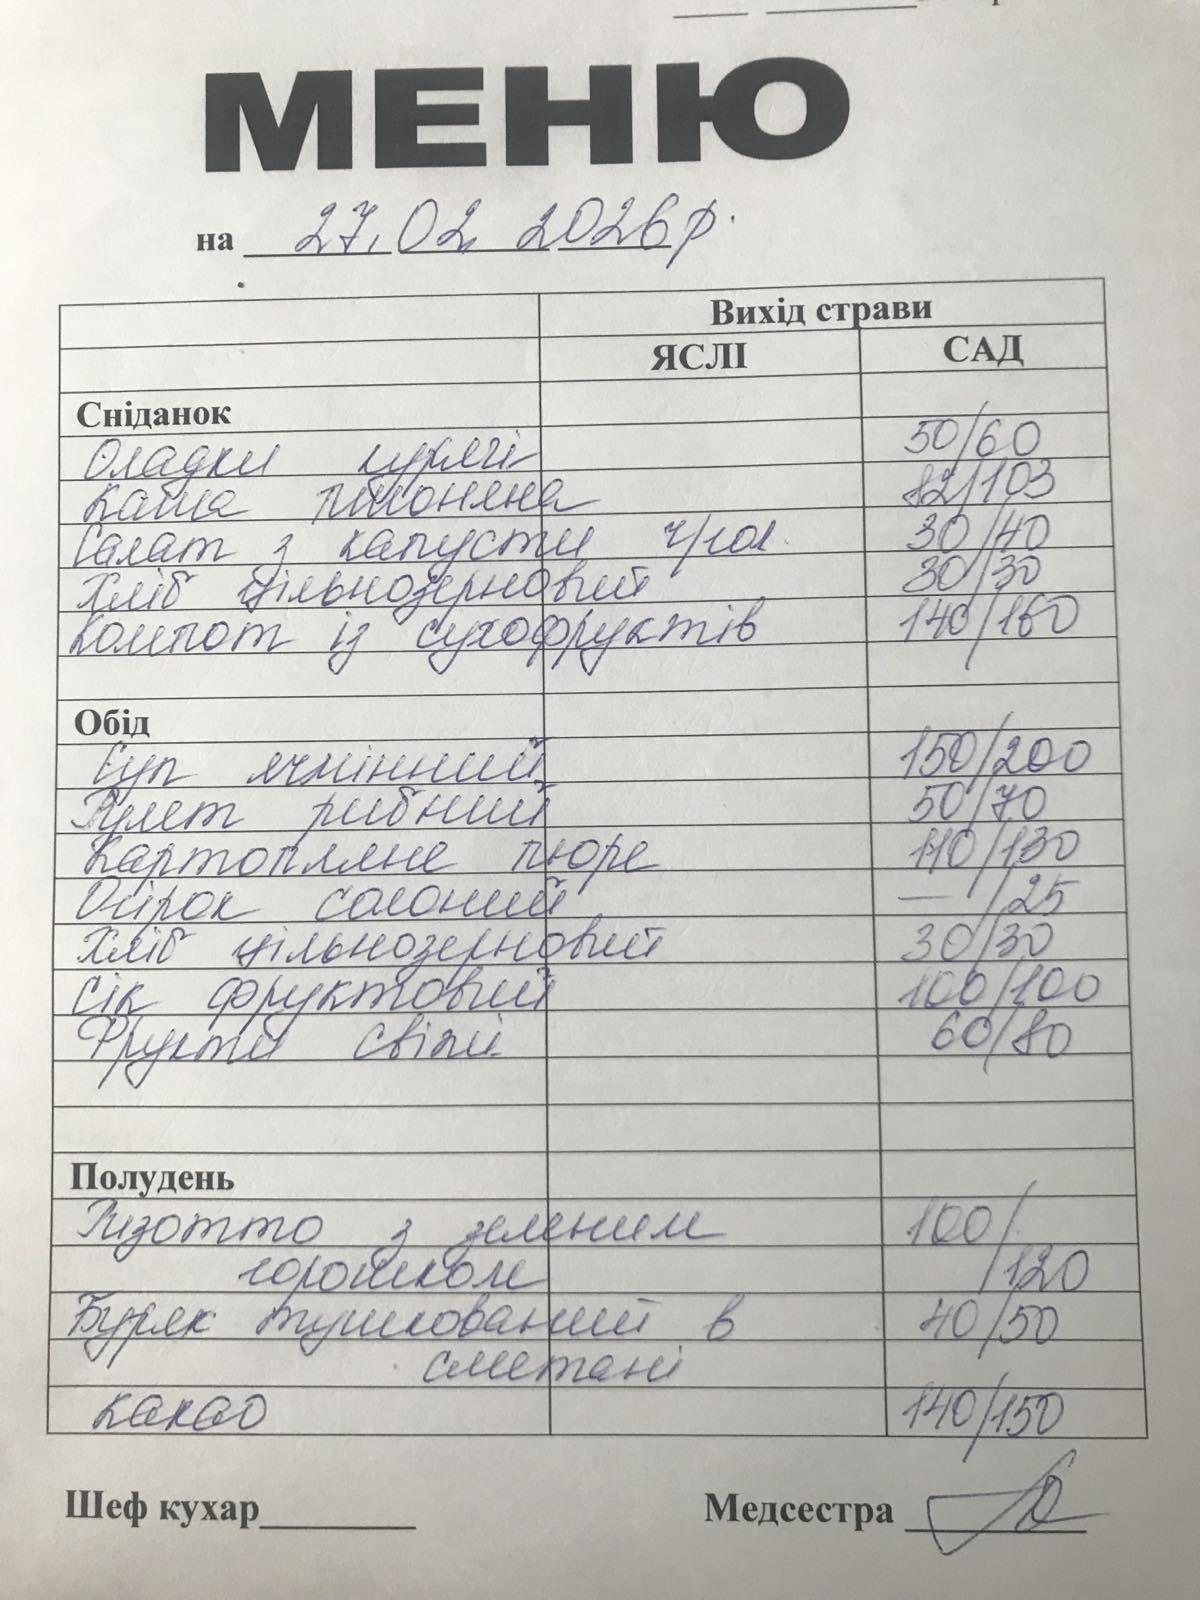 МЕНЮ
на 27.02 2026р.
Вихід страви
ЯСЛІ САД
Сніданок
Оладки курячі 50/60
Каша пшоняна 82/103
Салат з капусти 30/40
Хліб цільнозерновий 30/30
Компот із сухофруктів 140/160
Обід
Суп ячмінний 150/200
Рулет рибний 50/70
Картопляне пюре 110/130
Огірок солоний —/25
Хліб цільнозерновий 30/30
Сік фруктовий 100/100
Фрукти свіжі 60/80
Полудень
Різотто з зеленим 100/
горошком /120
Буряк тушкований в 40/50
сметані
какао 140/150
Шеф кухар Медсестра